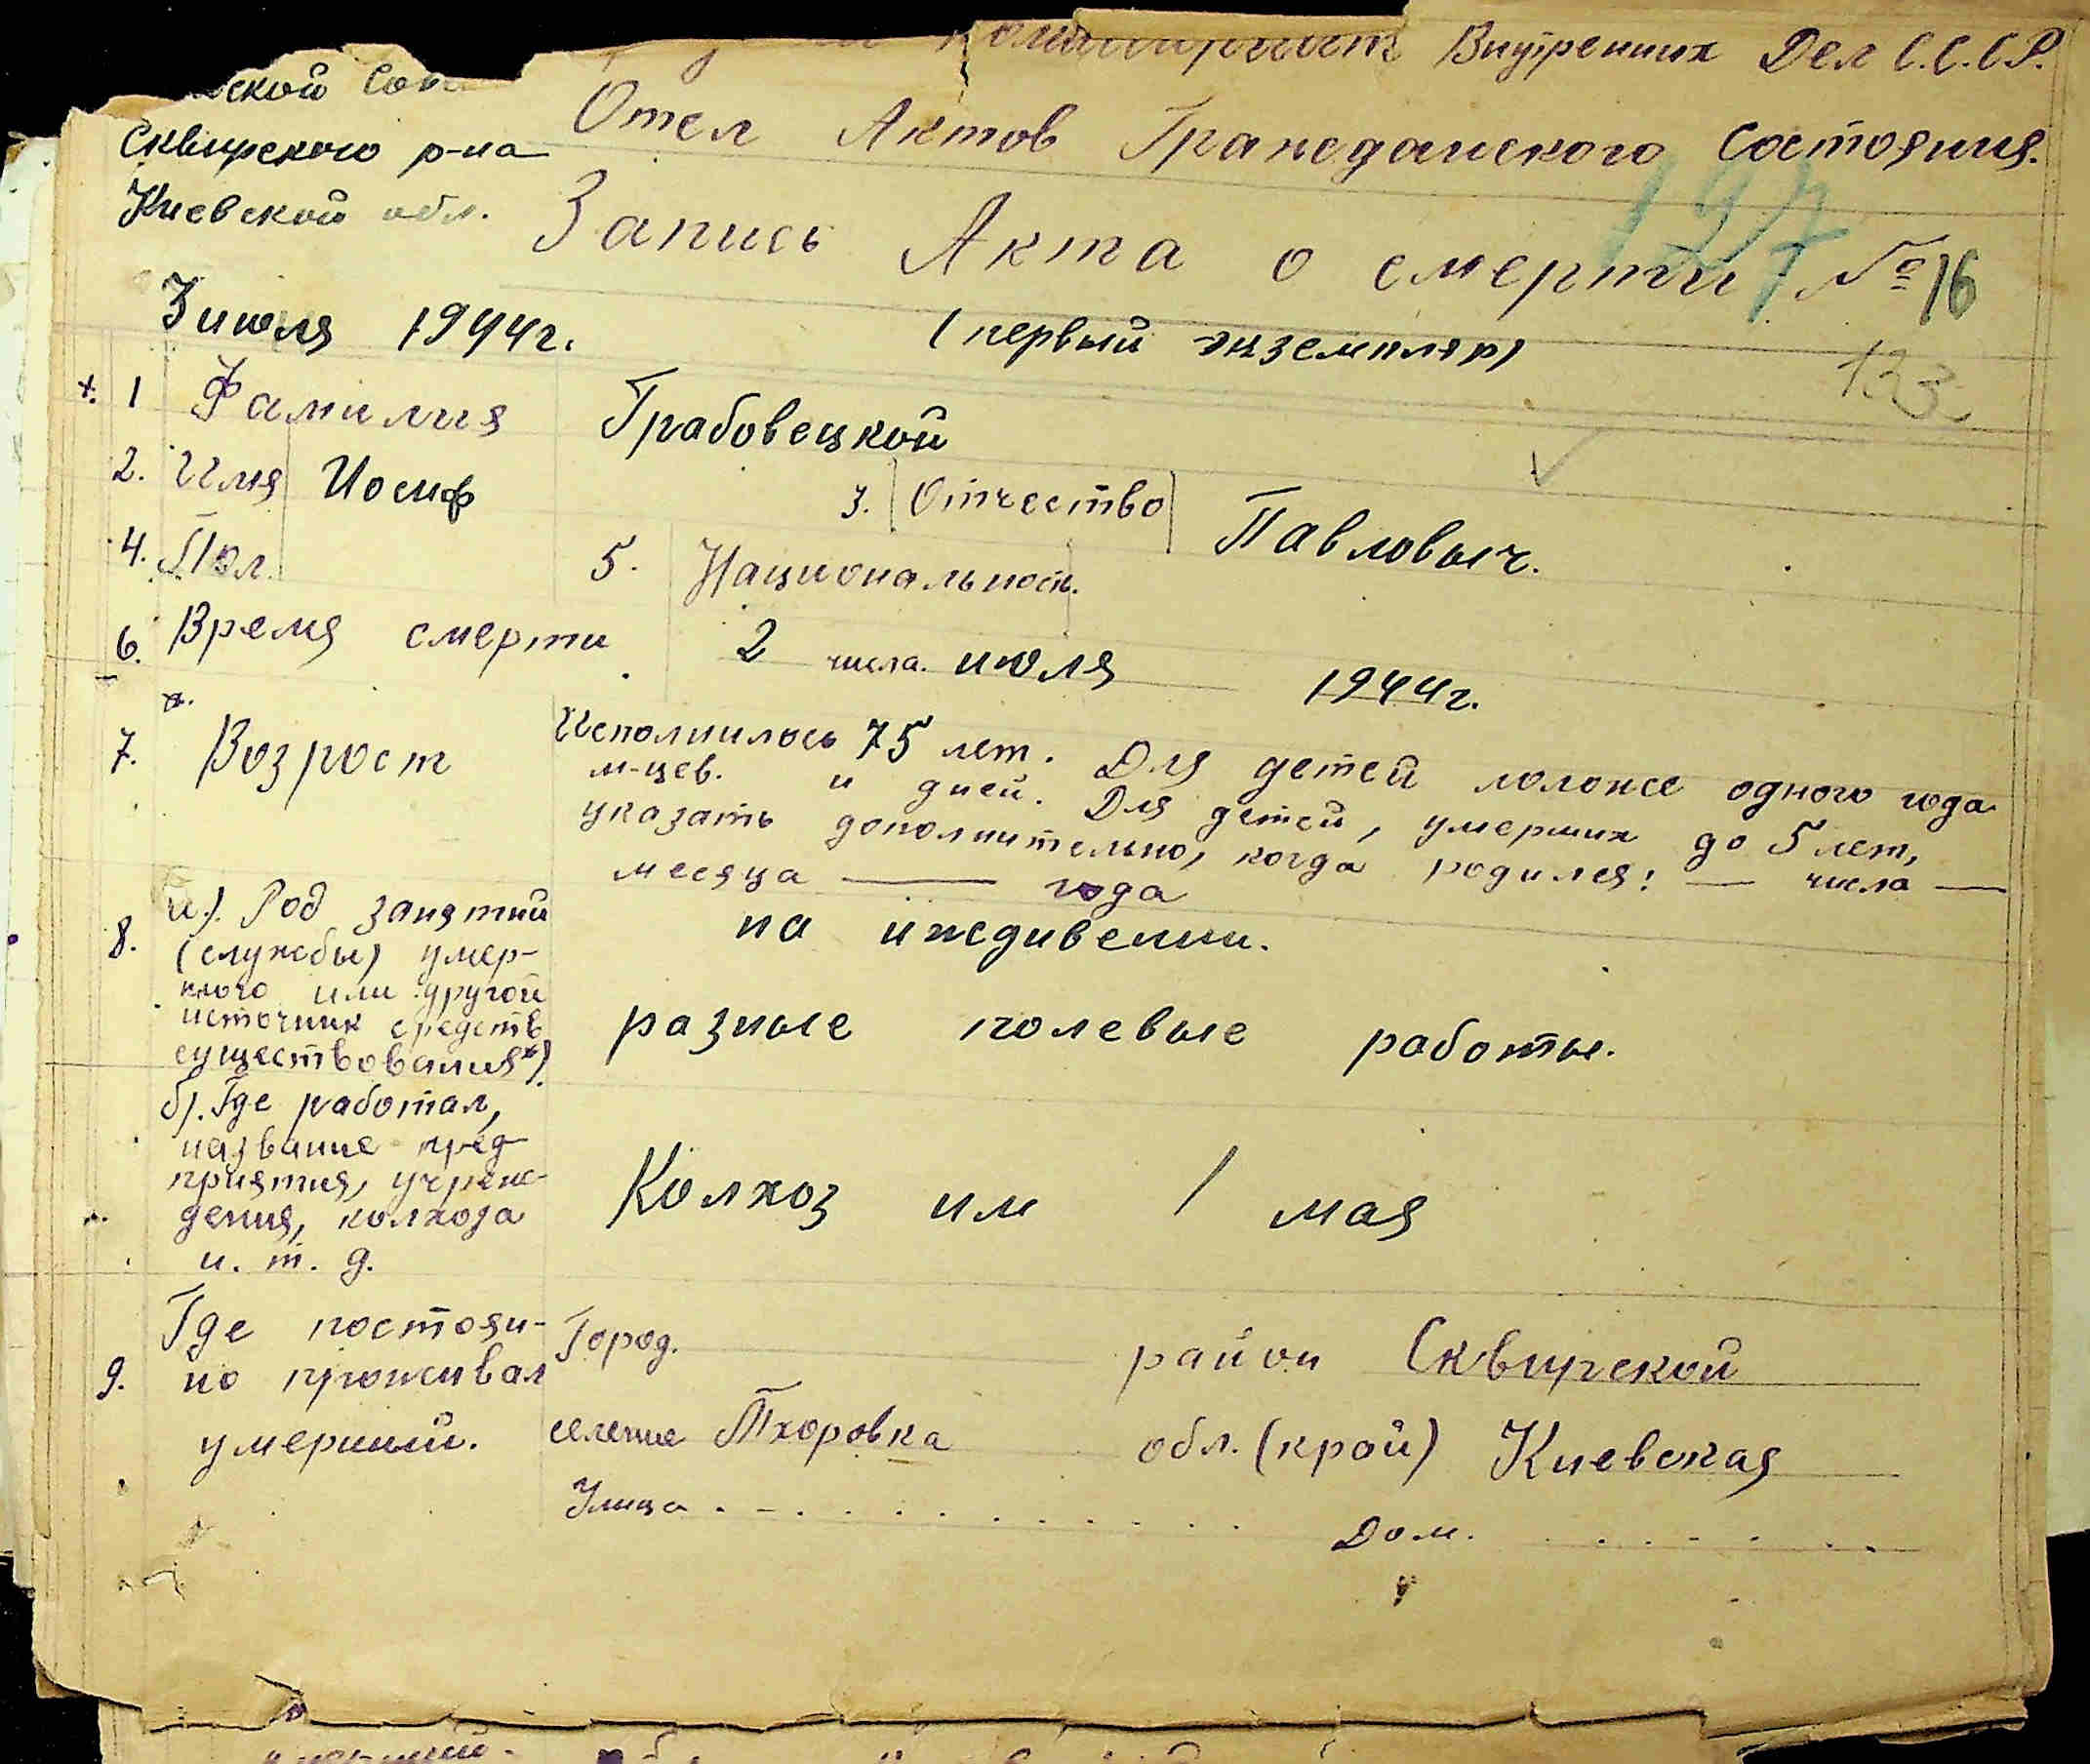 Внутренних Дел С.С.С.Р.
ской Сов
Сквирского р-на
Киевской обл.
Отел Актов Гражданского Состояния.
Запись Акта о смерти № 16
197
3 июля 1944г.
(первый экземпляр)
133
1 Фамилия Грабовецкой
2. Имя Иосиф 3. Отчество Павловыч.
4. Пол. 5. Национальность.
6. Время смерти 2 числа июля 1944г.
7. Возрост Исполнилось 75 лет. Для детей моложе одного года
м-цев. и дней. Для детей, умерших до 5 лет,
указать дополнительно, когда родился: — числа —
месяца — года
8. а). Род занятий
(службы) умер-
шего или другой
источник средств
существования*)
на иждивении.
разные полевые работы.
б). Где работал,
название пред-
приятия, учреж-
дения, колхоза
и. т. д.
Колхоз им 1 мая
9. Где постоян-
но проживал
умерший.
Город. район Сквирской
селение Тхоровка обл. (край) Киевская
Улица . - . . . . . . . . . . Дом. . . . . . .